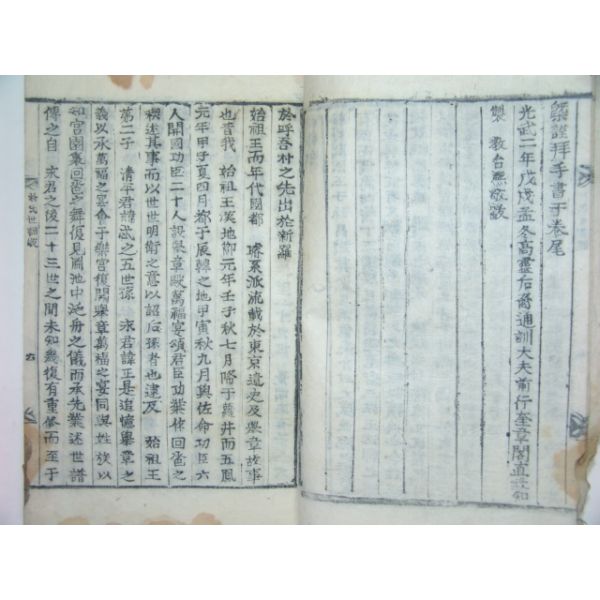 謹拜手書于卷尾
光武二年戊戌孟冬高靈后裔通訓大夫前行奎章閣直
製 敎台熙敬跋
於呼吾朴之先出於新羅
始祖王而年代國都 璿系派流載於東京遺史及擧章故事
也昔我 始祖王漢地節元年壬子秋七月降于蘿井而五鳳
元年甲子夏四月都于辰韓之地甲寅秋九月與佐命功臣六
人開國功臣二十人設擧章歐萬福宴頌君臣功業使回
述其事而以世世明衛之意以詔后孫者也逮及 始祖王
第二子 淸平君諱 之五世孫 永君諱王是追憶擧章之
義以承萬福之宴會于樂宮復開擧章萬福之宴同與姓族以
知宮園裏回 之舞復見圃池中 舟之儀而承先業述世譜
傳之自 永君之後二十三世之間未知幾復有重修而至于
朴氏世譜跋